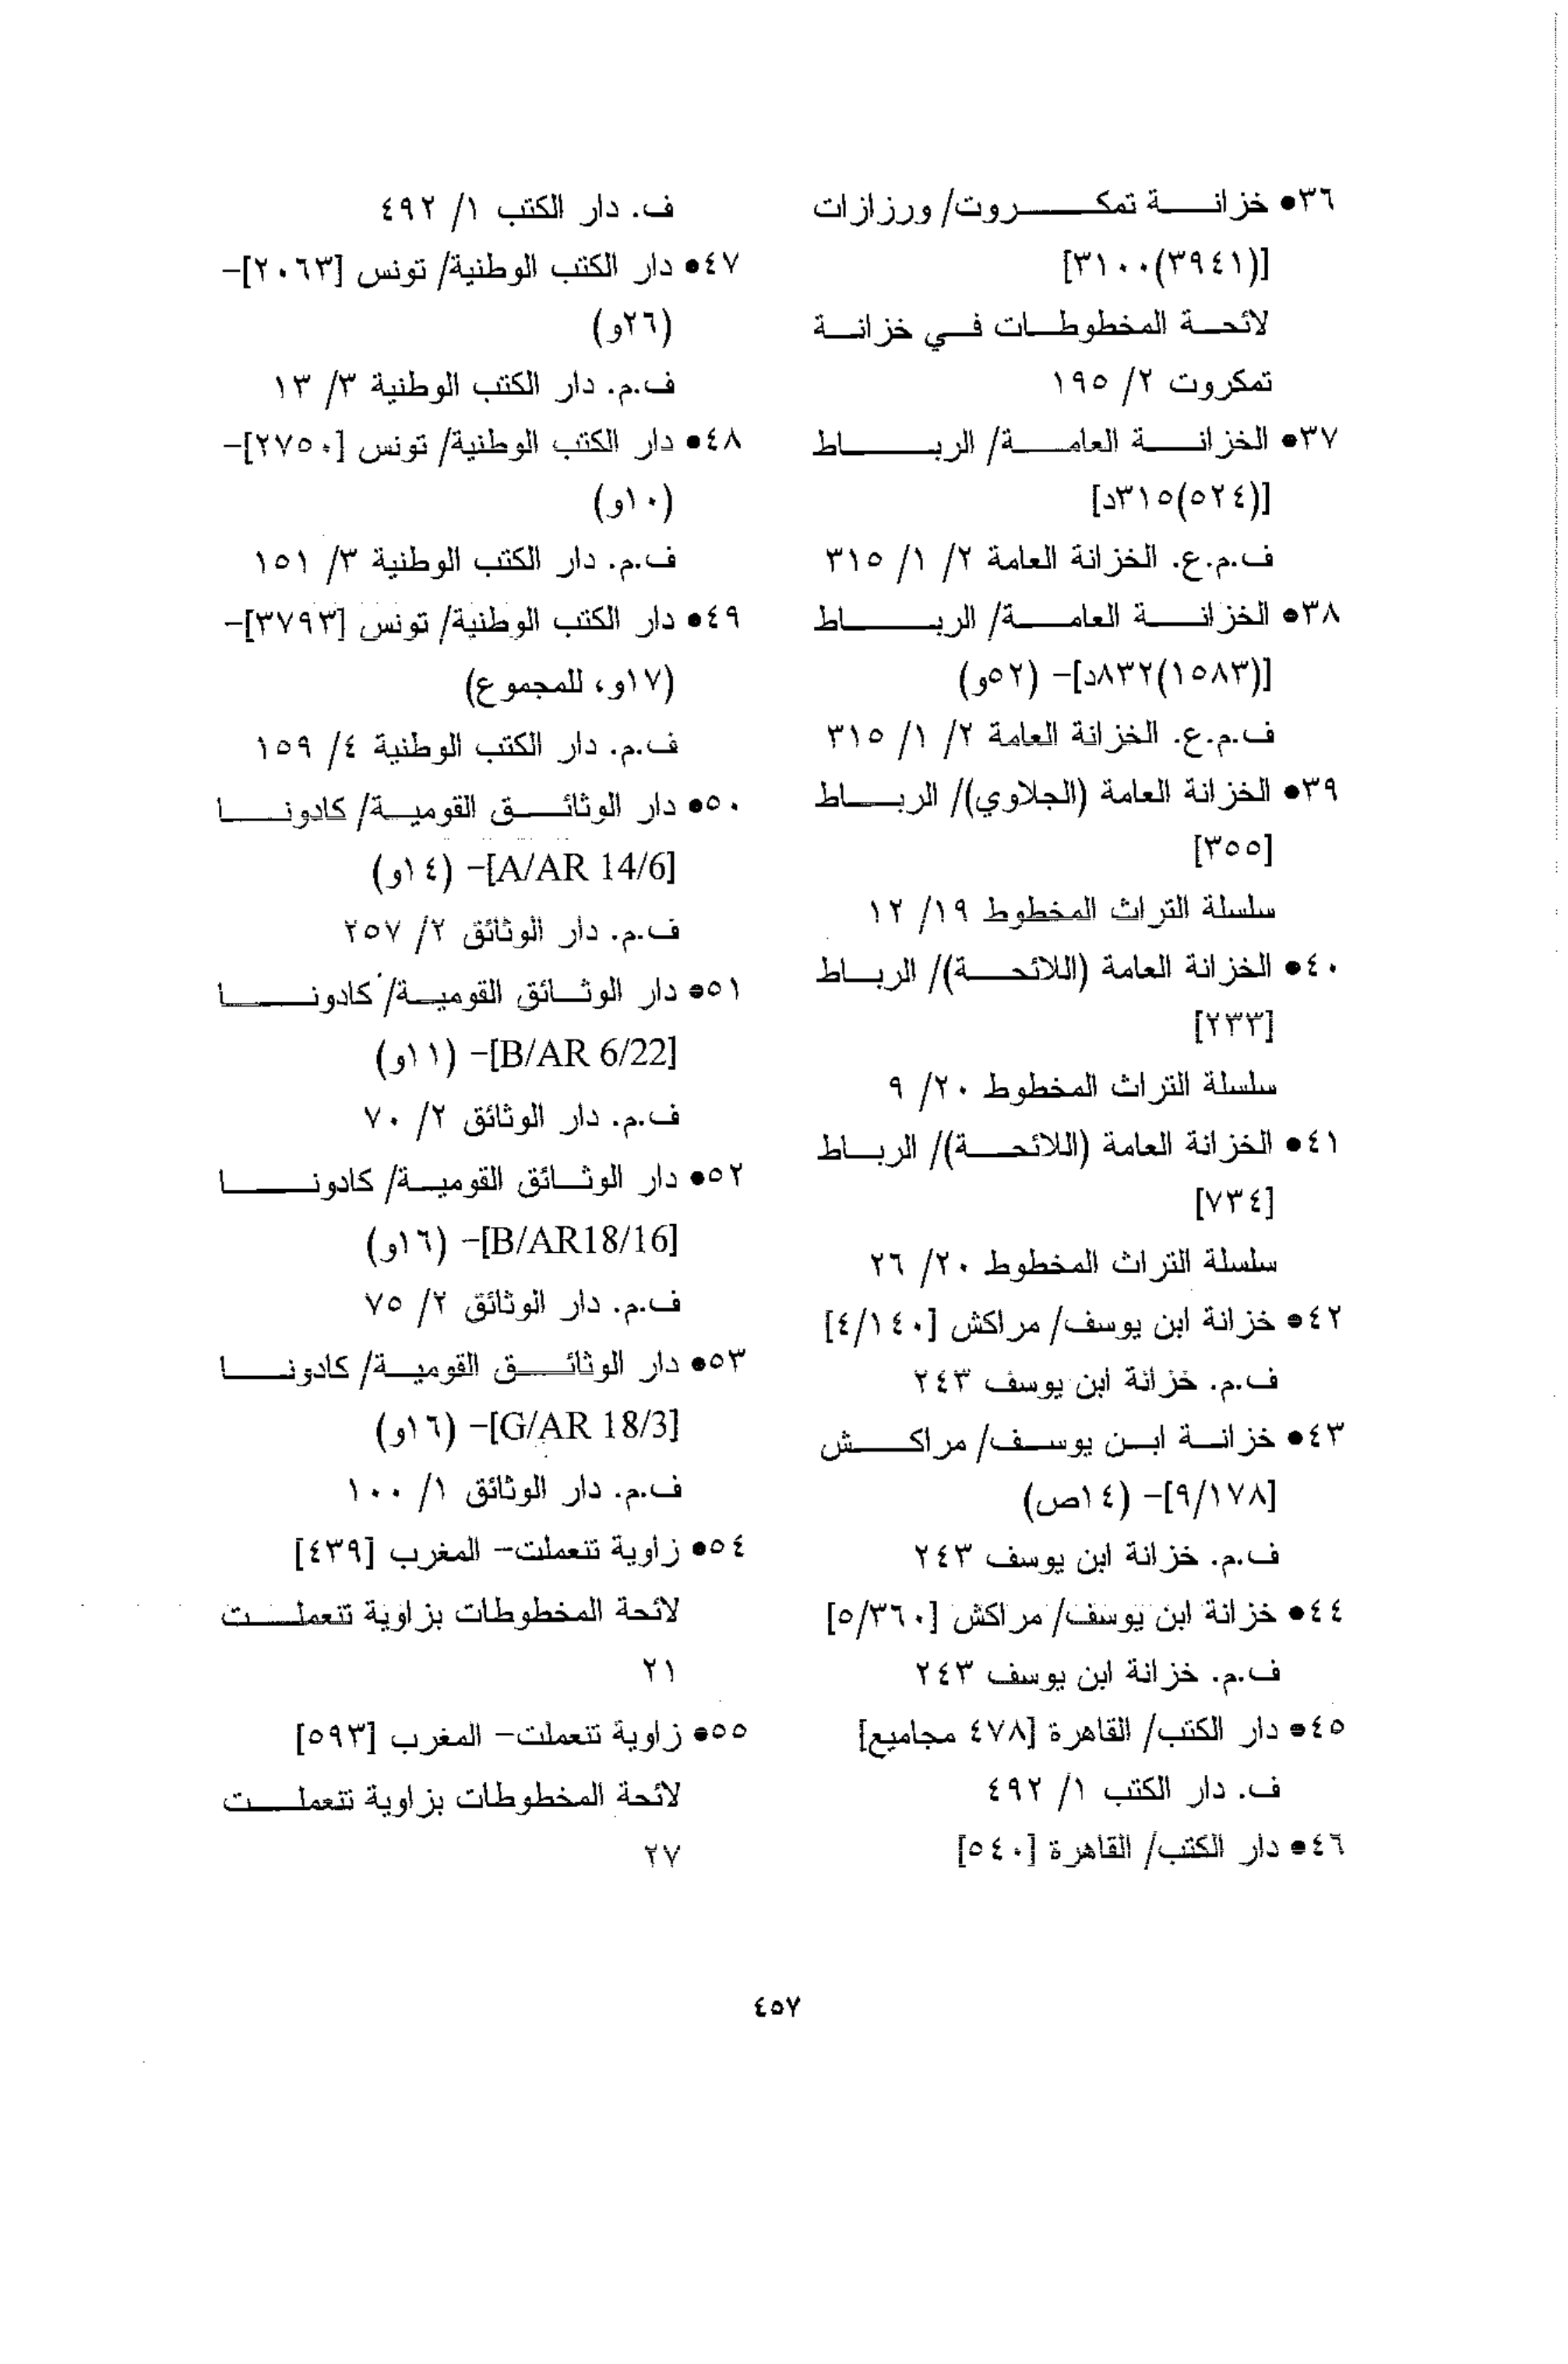 ٣٦• خزانة تمكروت/ ورزازات
[(٣٩٤١)٣١٠٠]
لائحة المخطوطات في خزانة
تمكروت ٢/ ١٩٥
٣٧• الخزانة العامة/ الرباط
[(٥٢٤)٣١٥د]
ف.م.ع. الخزانة العامة ٢/ ١/ ٣١٥
٣٨• الخزانة العامة/ الرباط
[(١٥٨٣)٨٣٢د]- (٥٢و)
ف.م.ع. الخزانة العامة ٢/ ١/ ٣١٥
٣٩• الخزانة العامة (الجلاوي)/ الرباط
[٣٥٥]
سلسلة التراث المخطوط ١٩/ ١٢
٤٠• الخزانة العامة (اللائحة)/ الرباط
[٢٣٣]
سلسلة التراث المخطوط ٢٠/ ٩
٤١• الخزانة العامة (اللائحة)/ الرباط
[٧٣٤]
سلسلة التراث المخطوط ٢٠/ ٢٦
٤٢• خزانة ابن يوسف/ مراكش [٤/١٤٠]
ف.م. خزانة ابن يوسف ٢٤٣
٤٣• خزانة ابن يوسف/ مراكش
[٩/١٧٨]- (١٤ص)
ف.م. خزانة ابن يوسف ٢٤٣
٤٤• خزانة ابن يوسف/ مراكش [٥/٣٦٠]
ف.م. خزانة ابن يوسف ٢٤٣
٤٥• دار الكتب/ القاهرة [٤٧٨ مجاميع]
ف. دار الكتب ١/ ٤٩٢
٤٦• دار الكتب/ القاهرة [٥٤٠]
ف. دار الكتب ١/ ٤٩٢
٤٧• دار الكتب الوطنية/ تونس [٢٠٦٣]-
(٢٦و)
ف.م. دار الكتب الوطنية ٣/ ١٣
٤٨• دار الكتب الوطنية/ تونس [٢٧٥٠]-
(١٠و)
ف.م. دار الكتب الوطنية ٣/ ١٥١
٤٩• دار الكتب الوطنية/ تونس [٣٧٩٣]-
(١٧و، للمجموع)
ف.م. دار الكتب الوطنية ٤/ ١٥٩
٥٠• دار الوثائق القومية/ كادونا
[A/AR 14/6]- (١٤و)
ف.م. دار الوثائق ٢/ ٢٥٧
٥١• دار الوثائق القومية/ كادونا
[B/AR 6/22]- (١١و)
ف.م. دار الوثائق ٢/ ٧٠
٥٢• دار الوثائق القومية/ كادونا
[B/AR18/16]- (١٦و)
ف.م. دار الوثائق ٢/ ٧٥
٥٣• دار الوثائق القومية/ كادونا
[G/AR 18/3]- (١٦و)
ف.م. دار الوثائق ١/ ١٠٠
٥٤• زاوية تنعملت- المغرب [٤٣٩]
لائحة المخطوطات بزاوية تنعملت
٢١
٥٥• زاوية تنعملت- المغرب [٥٩٣]
لائحة المخطوطات بزاوية تنعملت
٢٧
٤٥٧